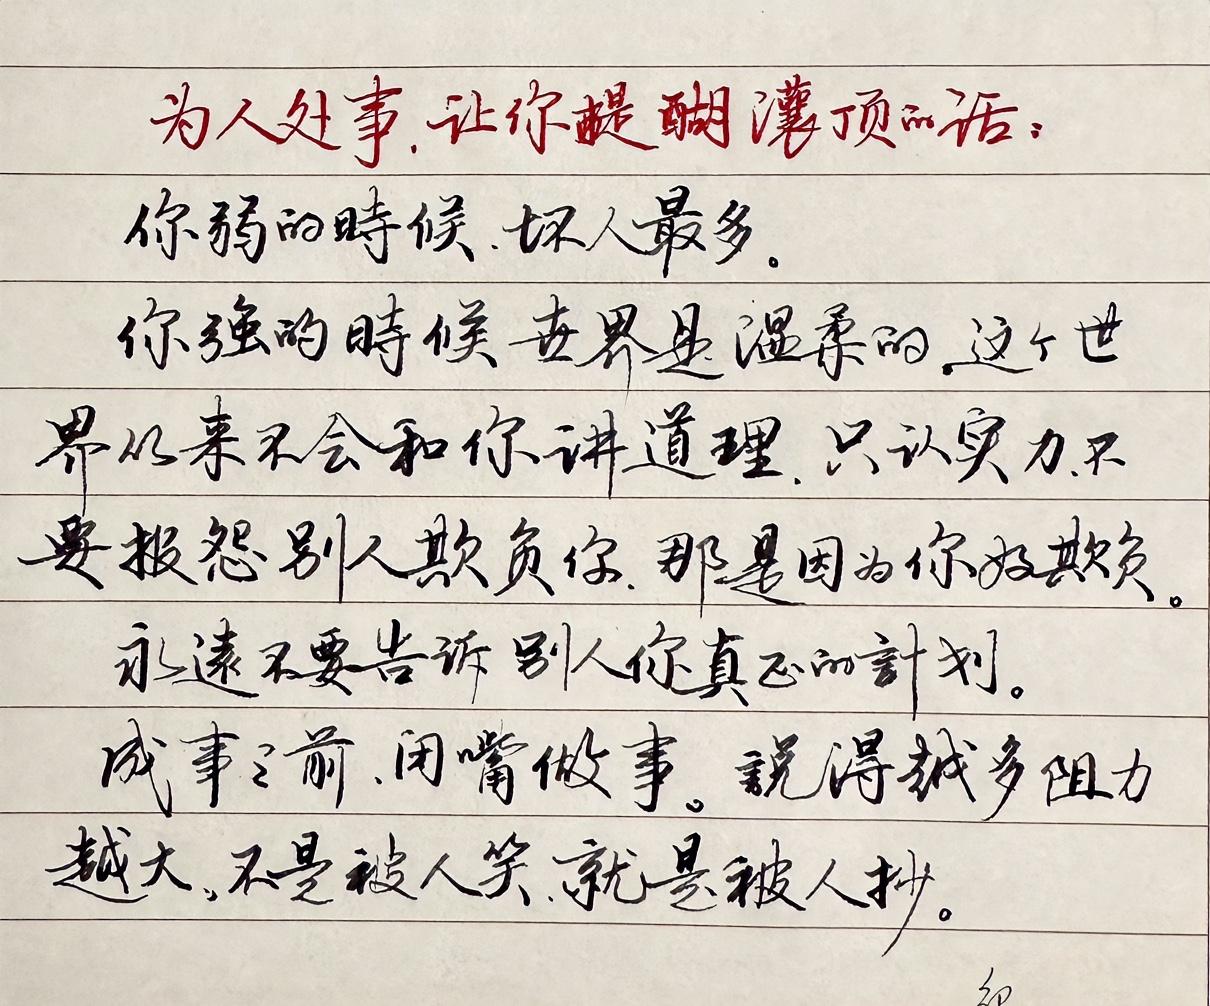 为人处事,让你醍醐灌顶的话:
你弱的時候,坏人最多。
你强的時候世界是温柔的,这个世
界从来不会和你讲道理,只认实力,不
要报怨别人欺负你,那是因为你好欺负。
永遠不要告诉别人你真正的計划。
成事之前,闭嘴做事。說得越多阻力
越大,不是被人笑,就是被人抄。